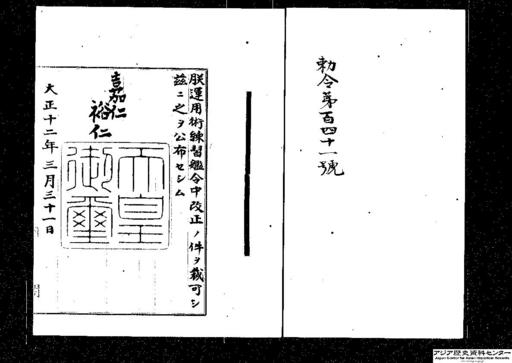 勅令第百四十一號
朕運用術練習艦令中改正ノ件ヲ裁可シ
茲ニ之ヲ公布セシム
嘉仁
裕仁
天皇
御璽
大正十二年三月三十一日
アジア歴史資料センター
Japan Center for Asian Historical Records